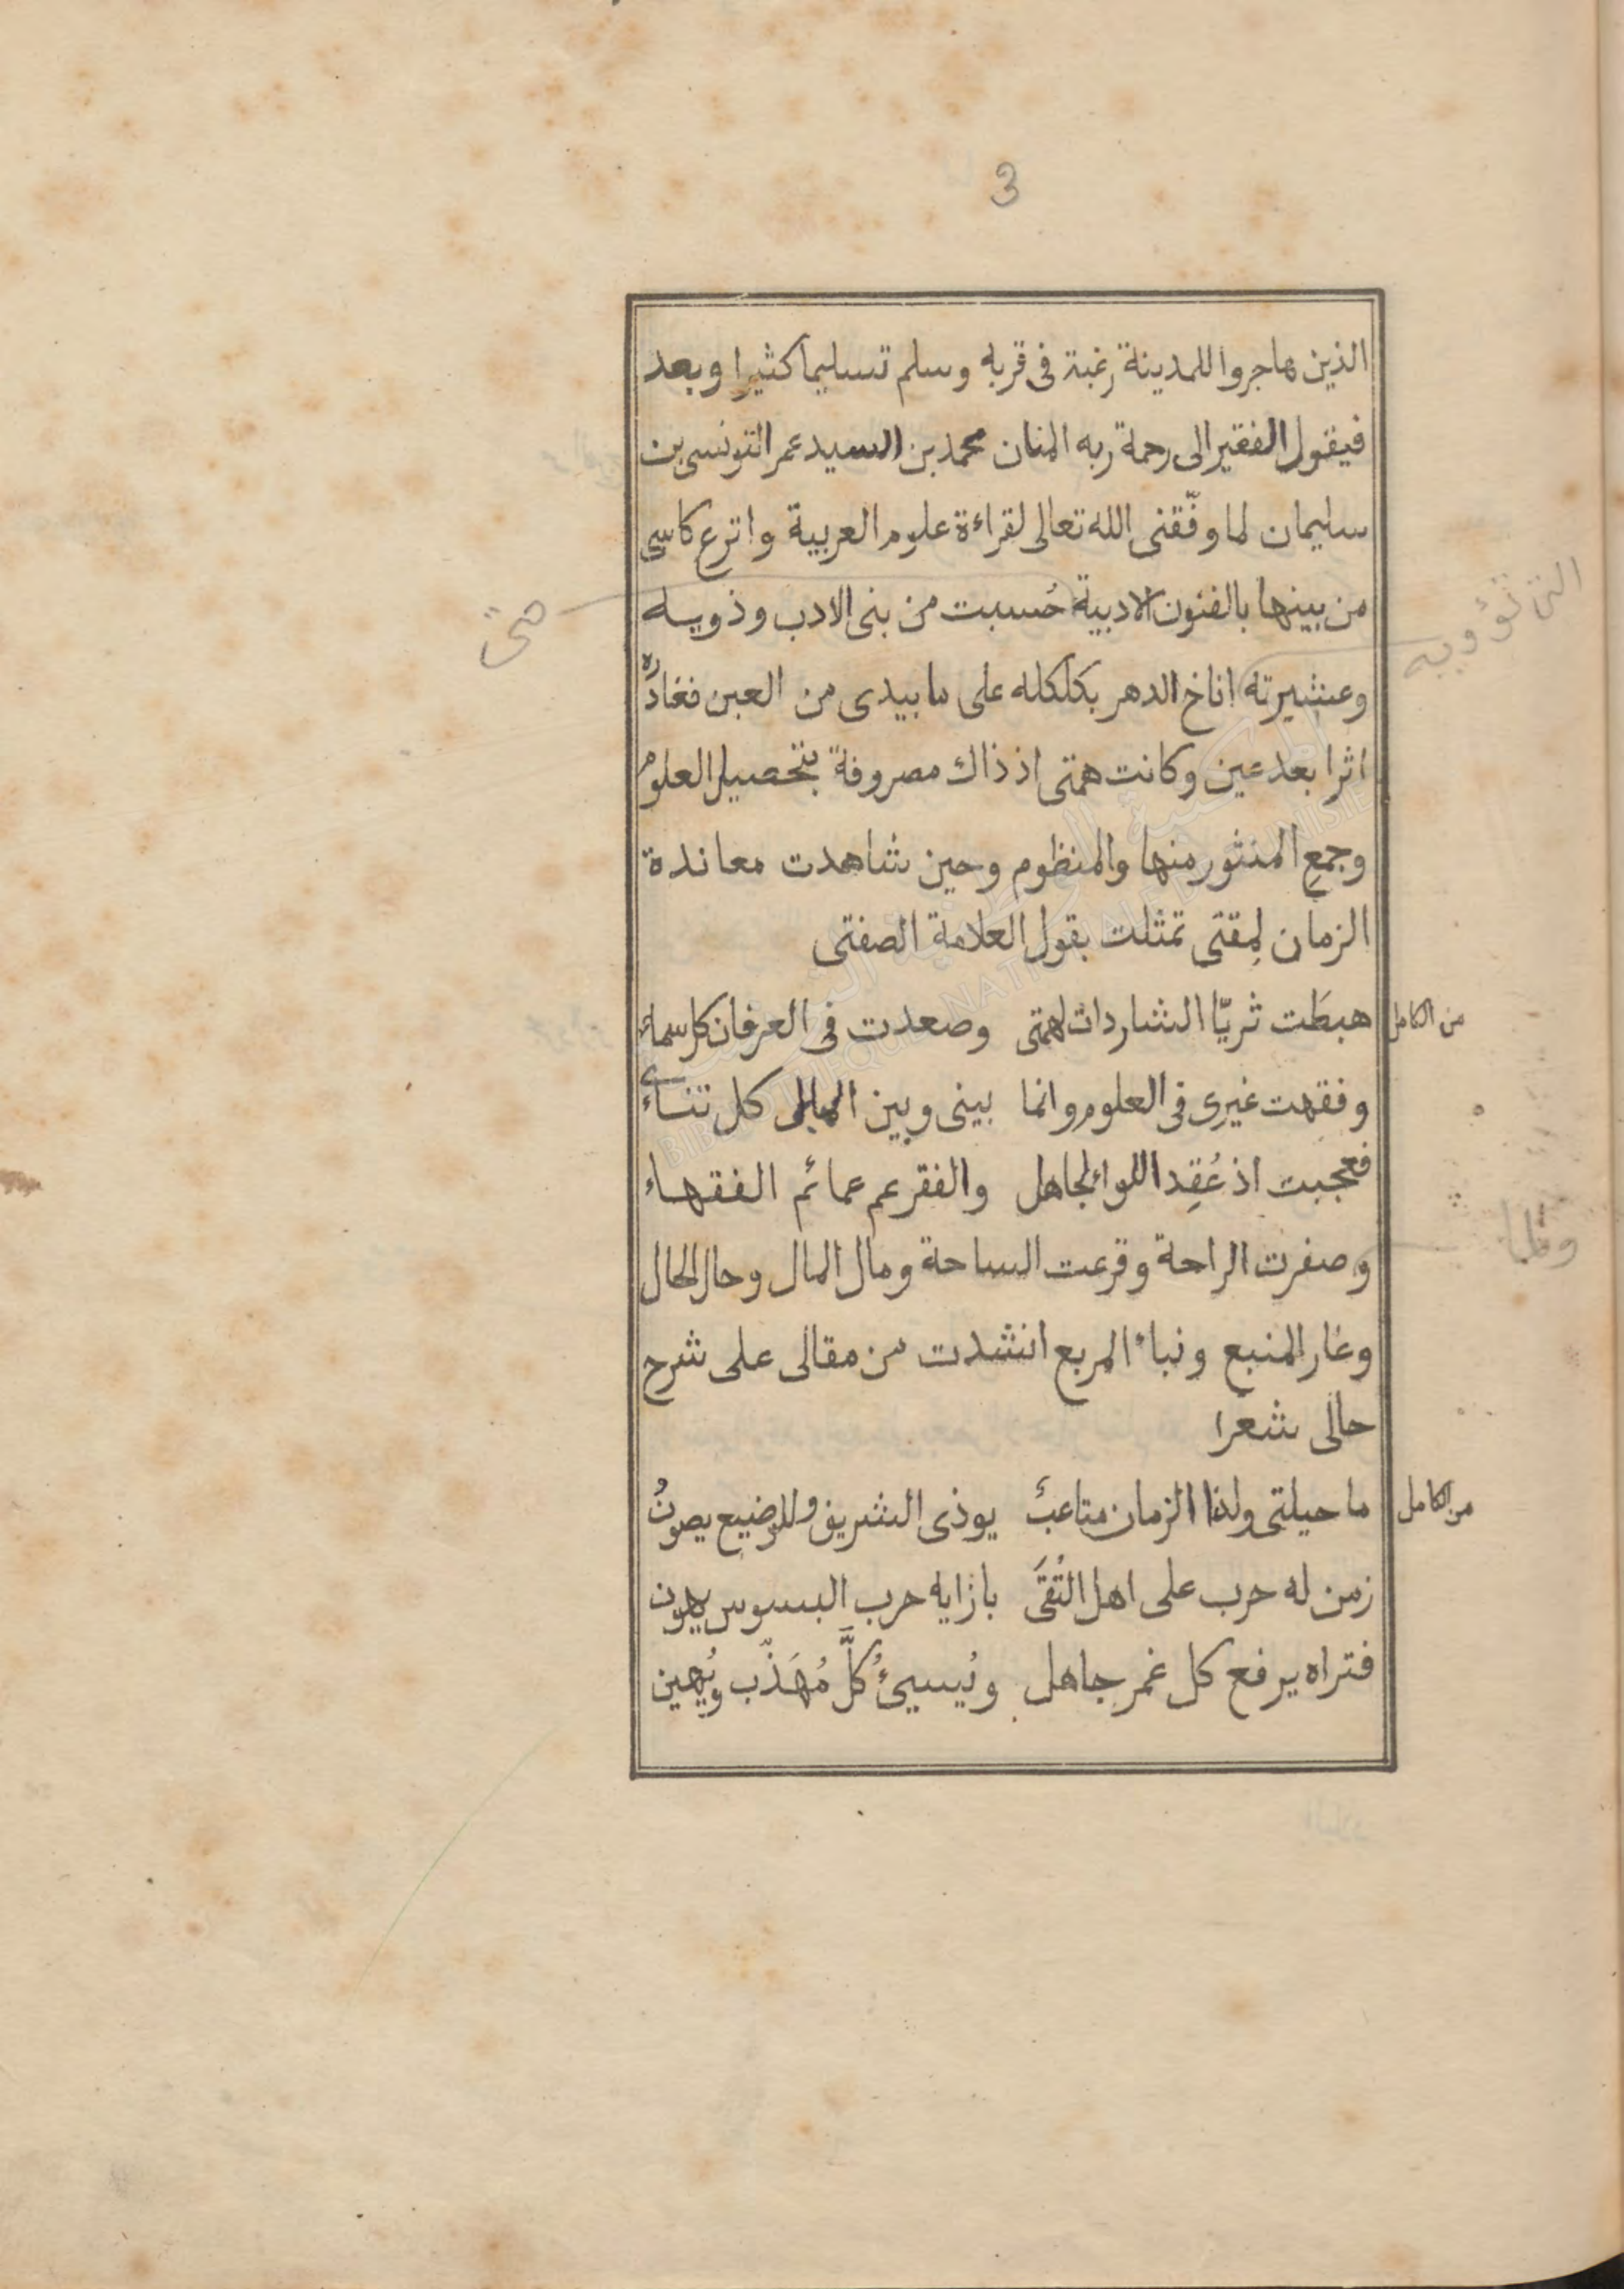 3
الذين هاجروا للمدينة رغبة فى قربه وسلم تسليما كثيرا وبعد
فيقول الفقير الى رحمة ربه المنان محمد بن السيد عمر التونسى بن
سليمان لما وفّقنى الله تعالى لقراءة علوم العربية واترع كاسى
من بينها بالفنون الادبية حُسبت من بنى الادب وذويه
حتى
وعشيرته اناخ الدهر بكلكله على ما بيدى من العين فغادره
اثرا بعد عين وكانت همتى اذ ذاك مصروفة بتحصيل العلوم
وجمع المنثور منها والمنظوم وحين شاهدت معاندة
الزمان لِمِقتى تمثلت بقول العلامة الصفتى
من الكامل
هبطَت ثريّا الشاردات لهمتى وصعدت فى العرفان كل سماء
وفقهت غيرى فى العلوم وانما بينى وبين المال كل تناءى
فعجبت اذ عُقِد اللواء لجاهل والفقر عم عمائم الفقهاء
ولما
وصفرت الراحة وقرعت الساحة ومال المال وحال الحال
وغار المنبع ونباء المربع انشدت من مقالى على شرح
حالى شعرا
من الكامل
ما حيلتى ولذا الزمان متاعبُ يوذى الشريف وللوضيع يصونُ
زمن له حرب على اهل التُقَى بازايه حرب البسوس يهون
فتراه يرفع كل غمر جاهل ويُسيئُ كلَّ مُهَذّب ويُهين